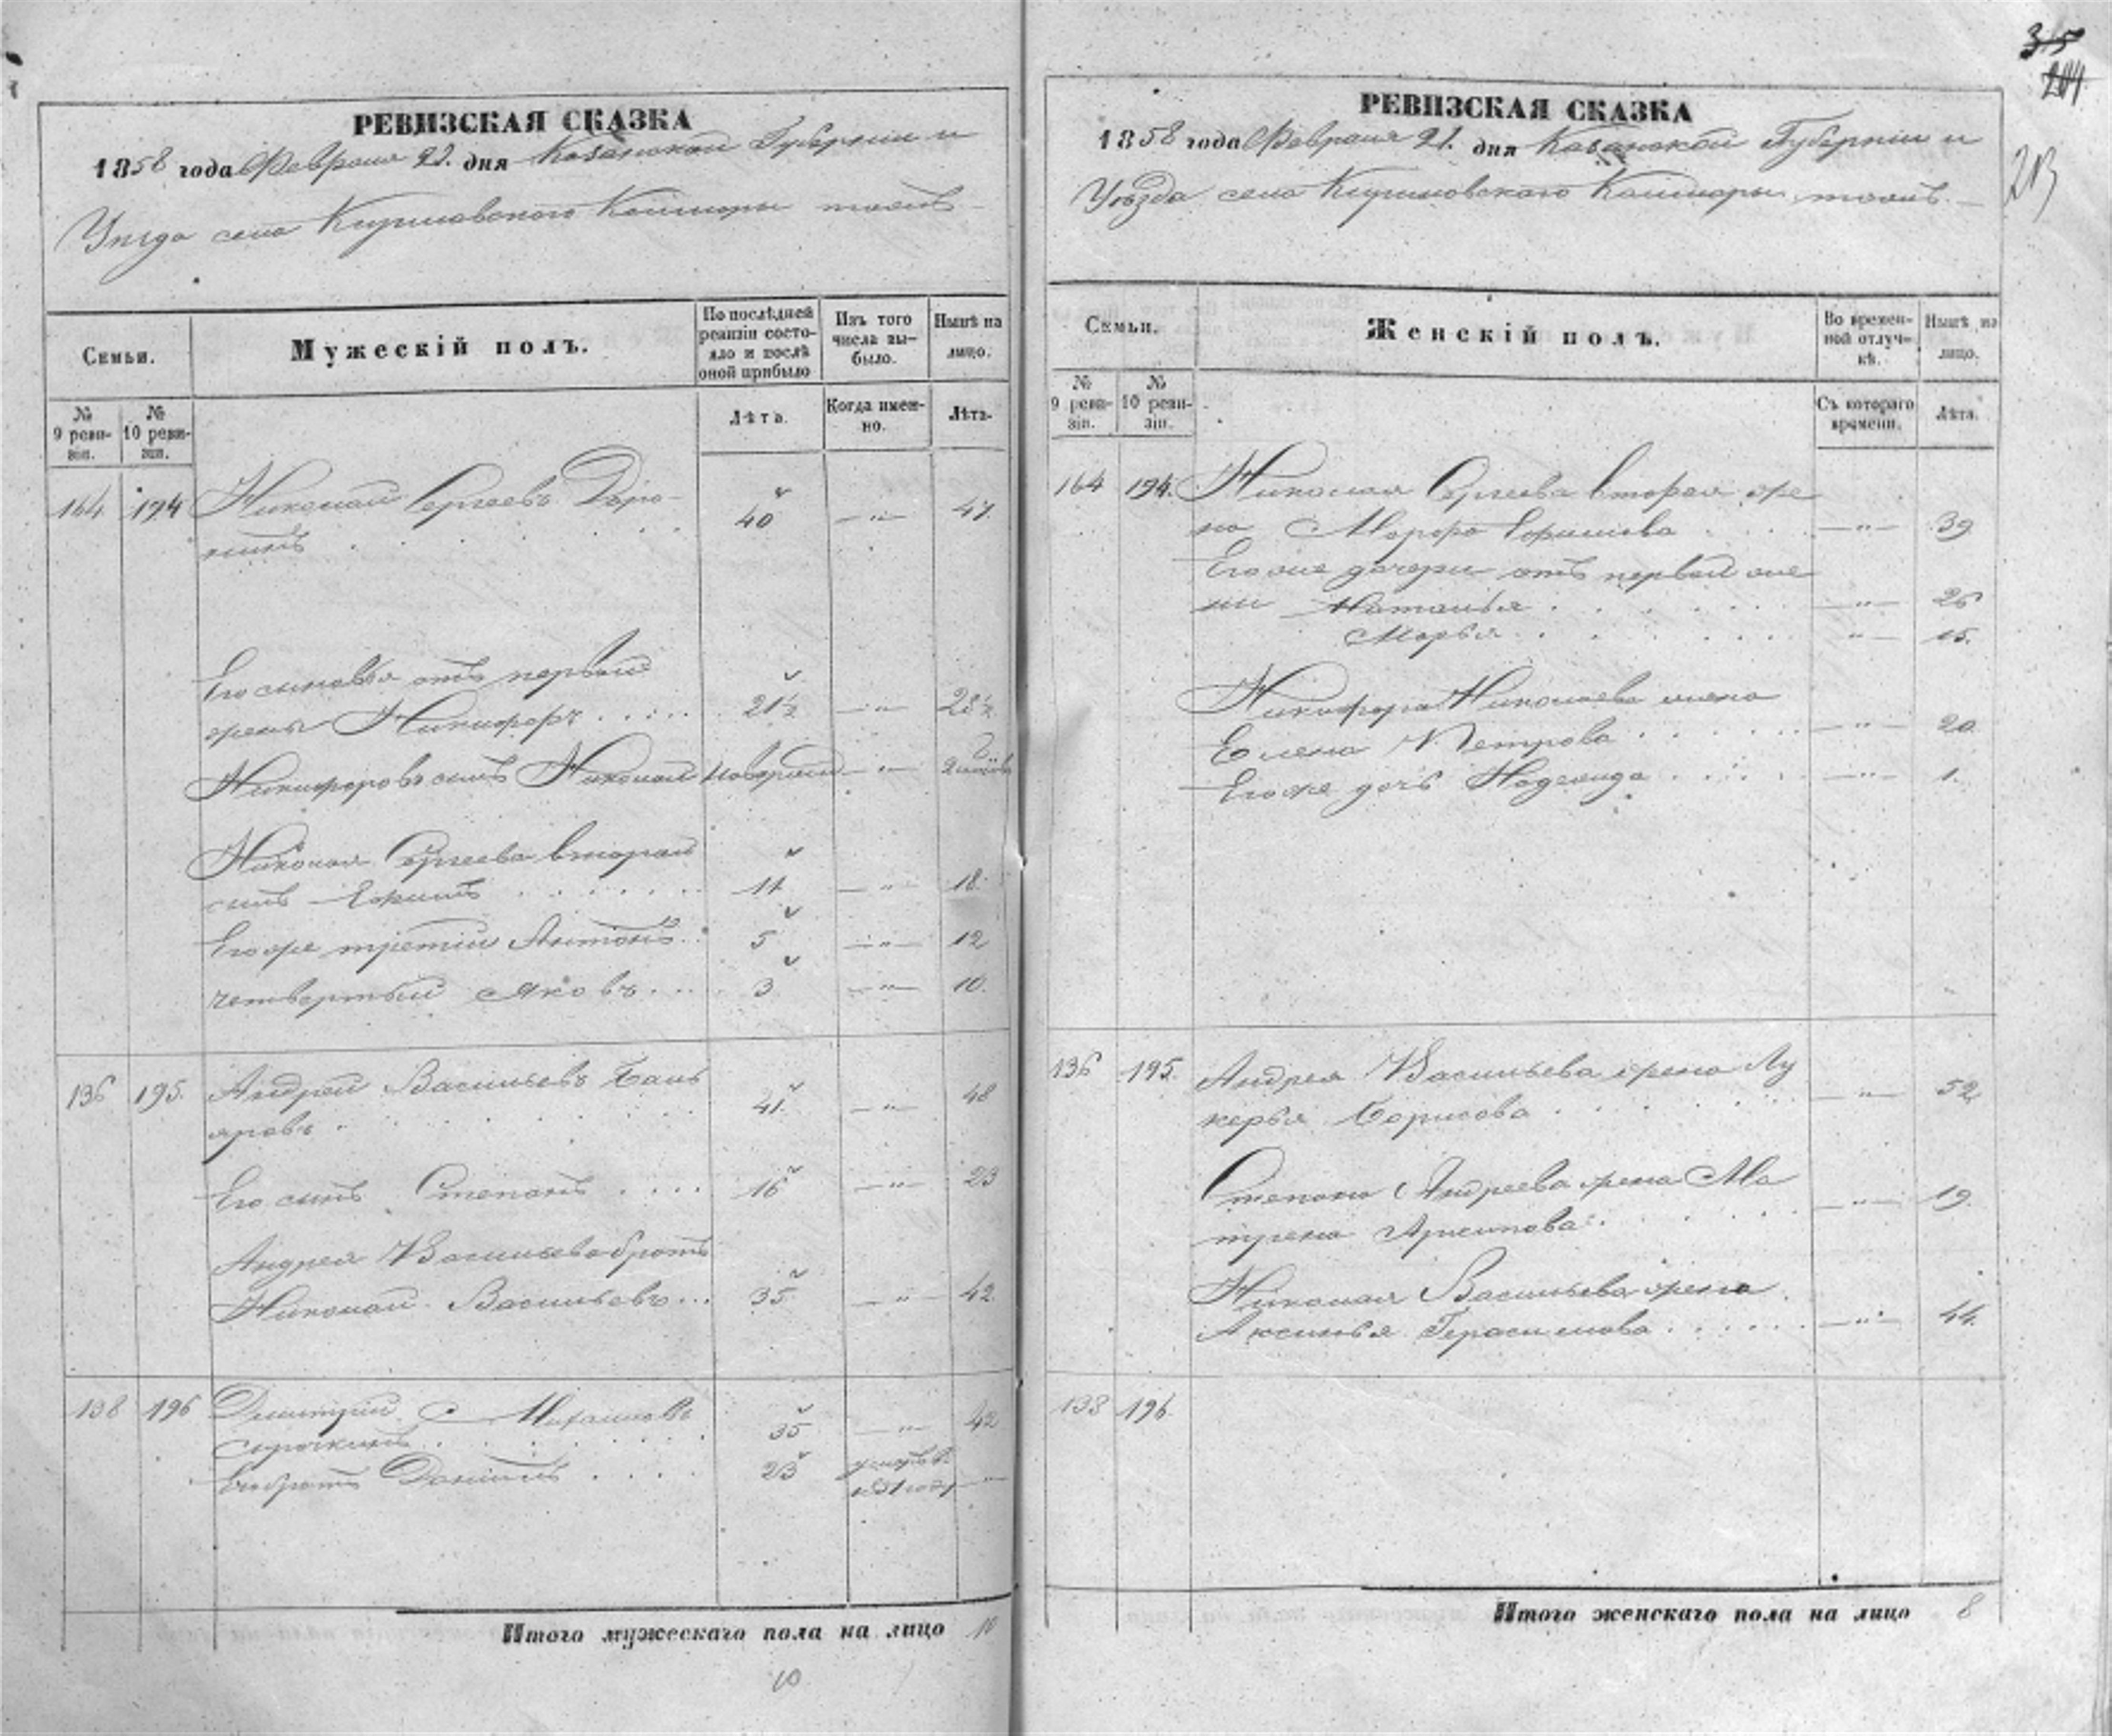 РЕВИЗСКАЯ СКАЗКА
1858 года Февраля 21. дня Казанской Губерніи и
Уѣзда села Кашморы тожъ
Семьи.
Мужескій полъ.
По послѣдней ревизіи состояло и послѣ оной прибыло
Изъ того числа вы-было.
Нынѣ на лицо.
№ 9 реви-зіи.
№ 10 реви-зіи.
Лѣта.
Когда имен-но.
Лѣта.
164 194 Николай Сергеевъ Доро- 40 —"— 47.
нинъ
Его сыновья отъ первой
жены Никифоръ 21½ —"— 28½
Никифоровъ сынъ Николай новорож —"—
Николая Сергеева второй
сынъ Ефимъ 11 —"— 18.
Егоже третій Антонъ 5 —"— 12
четвертый Яковъ 3 —"— 10.
136 195. Андрей Васильевъ 41. —"— 48
яровъ
Его сынъ Степанъ 16 —"— 23
Андрея Васильева братъ
Николай Васильевъ 35 —"— 42.
138 196 Дмитрій Михайловъ 35 —"— 42
Сорокинъ
Его братъ Данилъ 23 —"—
Итого мужескаго пола на лицо 10
10
315
204
213
РЕВИЗСКАЯ СКАЗКА
1858 года Февраля 21. дня Казанской Губерніи и
Уѣзда села Кашморы тожъ.
Семьи.
Женскій полъ.
Во времен-ной отлуч-кѣ.
Нынѣ на лицо.
№ 9 реви-зіи.
№ 10 реви-зіи.
Съ котораго времени.
Лѣта.
164 194. Николая Сергеева вторая же
на Марфа Ефимова —"— 39
Его же дочери отъ первой же
ны Наталья —"— 26
Марья " 15.
Никифора Николаева жена
Елена Петрова —"— 20
Егоже дочь Надежда —"— 1.
136 195. Андрея Васильева жена Лу
керья Борисова —"— 52
Степана Андреева жена Ма
трена Архипова —"— 19.
Николая Васильева жена
Аксинья Герасимова —"— 44.
138 196.
Итого женскаго пола на лицо 8